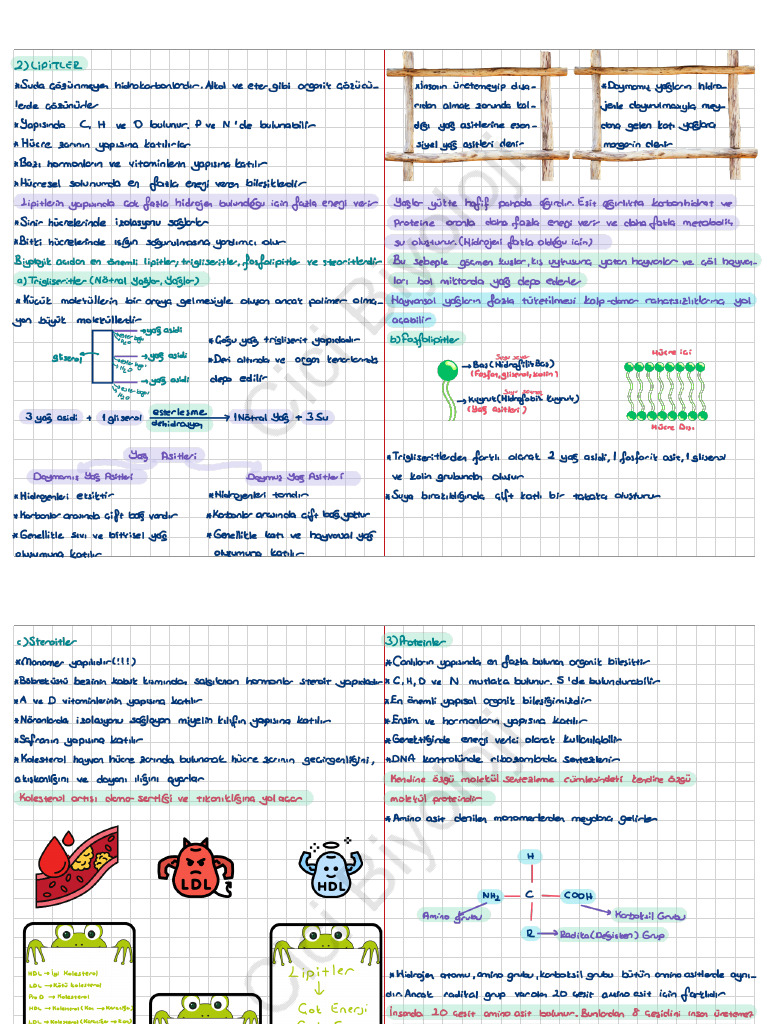 2) LİPİTLER
*Suda çözünmeyen hidrokarbonlardır. Alkol ve eter gibi organik çözücü-
lerde çözünürler
*Yapısında C, H ve O bulunur. P ve N'de bulunabilir
*Hücre zarının yapısına katılırlar
*Bazı hormonların ve vitaminlerin yapısına katılır
*Hücresel solunumda en fazla enerji veren bileşiklerdir
Lipitlerin yapısında çok fazla hidrojen bulunduğu için fazla enerji verir
*Sinir hücrelerinde izolasyonu sağlarlar
*Bitki hücrelerinde ışığın soğurulmasına yardımcı olur
Biyolojik açıdan en önemli lipitler; trigliseritler, fosfolipitler ve steroitlerdir
a) Trigliseritler (Nötral Yağlar, Yağlar)
*Küçük moleküllerin bir araya gelmesiyle oluşan ancak polimer olma-
yan büyük moleküllerdir
gliserol
yağ asidi
yağ asidi
yağ asidi
H₂O
H₂O
H₂O
*Çoğu yağ trigliserit yapıdadır
*Deri altında ve organ kenarlarında
depo edilir
3 yağ asidi + 1 gliserol esterleşme dehidrasyon 1 Nötral Yağ + 3 Su
Yağ Asitleri
Doymamış Yağ Asitleri
*Hidrojenleri eksiktir
*Karbonlar arasında çift bağ vardır
*Genellikle sıvı ve bitkisel yağ
oluşumuna katılır
Doymuş Yağ Asitleri
*Hidrojenleri tamdır
*Karbonlar arasında çift bağ yoktur
*Genellikle katı ve hayvansal yağ
oluşumuna katılır
*İnsanın üretemeyip dışa-
rıdan almak zorunda kal-
dığı yağ asitlerine esan-
siyel yağ asitleri denir
*Doymamış yağların hidro-
jenle doyurulmasıyla mey-
dana gelen katı yağlara
margarin denir
Yağlar yükte hafif pahada ağırdır. Eşit ağırlıkta karbonhidrat ve
Proteine oranla daha fazla enerji verir ve daha fazla metabolik
su oluşturur. (Hidrojeni fazla olduğu için)
Bu sebeple göçmen kuşlar, kış uykusuna yatan hayvanlar ve çöl hayvan-
ları bol miktarda yağ depo ederler
Hayvansal yağların fazla tüketilmesi kalp-damar rahatsızlıklarına yol
açabilir
b) Fosfolipitler
Suyu sever
Baş (Hidrofilik Baş)
(Fosfor, gliserol, kolin)
Suyu sevmez
Kuyruk (Hidrofobik Kuyruk)
(Yağ asitleri)
Hücre içi
Hücre Dışı
*Trigliseritlerden farklı olarak 2 yağ asidi, 1 fosforik asit, 1 gliserol
ve kolin grubundan oluşur
*Suya bırakıldığında çift katlı bir tabaka oluşturur
c) Steroitler
*Monomer yapılıdır (!!!)
*Böbreküstü bezinin kabuk kısmından salgılanan hormonlar steroit yapıdadır
*A ve D vitaminlerinin yapısına katılır
*Nöronlarda izolasyonu sağlayan miyelin kılıfın yapısına katılır
*Safranın yapısına katılır
*Kolesterol hayvan hücre zarında bulunarak hücre zarının geçirgenliğini,
akışkanlığını ve dayanıklılığını ayarlar
Kolesterol artışı damar sertliği ve tıkanıklığına yol açar
LDL
HDL
HDL → İyi Kolesterol
LDL → Kötü kolesterol
Pro D → Kolesterol
HDL → Kolesterol (Kan → Karaciğer)
LDL → Kolesterol (Karaciğer → Kan)
Lipitler
↓
Çok Enerji
3) Proteinler
*Canlıların yapısında en fazla bulunan organik bileşiktir
*C, H, O ve N mutlaka bulunur. S'de bulundurabilir
*En önemli yapısal organik bileşiğimizdir
*Enzim ve hormonların yapısına katılır
*Gerektiğinde enerji verici olarak kullanılabilir
*DNA kontrolünde ribozomlarda sentezlenir
Kendine özgü molekül sentezleme cümlesindeki kendine özgü
molekül proteindir
*Amino asit denilen monomerlerden meydana gelirler
H
NH₂ C COOH
Amino grubu
Karboksil Grubu
R Radikal (Değişken) Grup
*Hidrojen atomu, amino grubu, karboksil grubu bütün amino asitlerde aynı-
dır. Ancak radikal grup varolan 20 çeşit amino asit için farklıdır
İnsanda 20 çeşit amino asit bulunur. Bunlardan 8 çeşidini insan üretemez
Cici Biyoloji
Cici Biyoloji